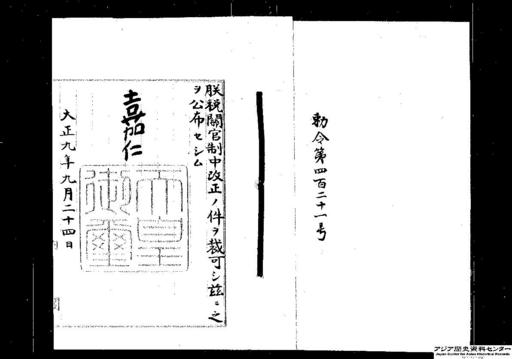 勅令第四百二十一号
朕税關官制中改正ノ件ヲ裁可シ茲ニ之
ヲ公布セシム
嘉仁
天皇御璽
大正九年九月二十四日
アジア歴史資料センター
Japan Center for Asian Historical Records